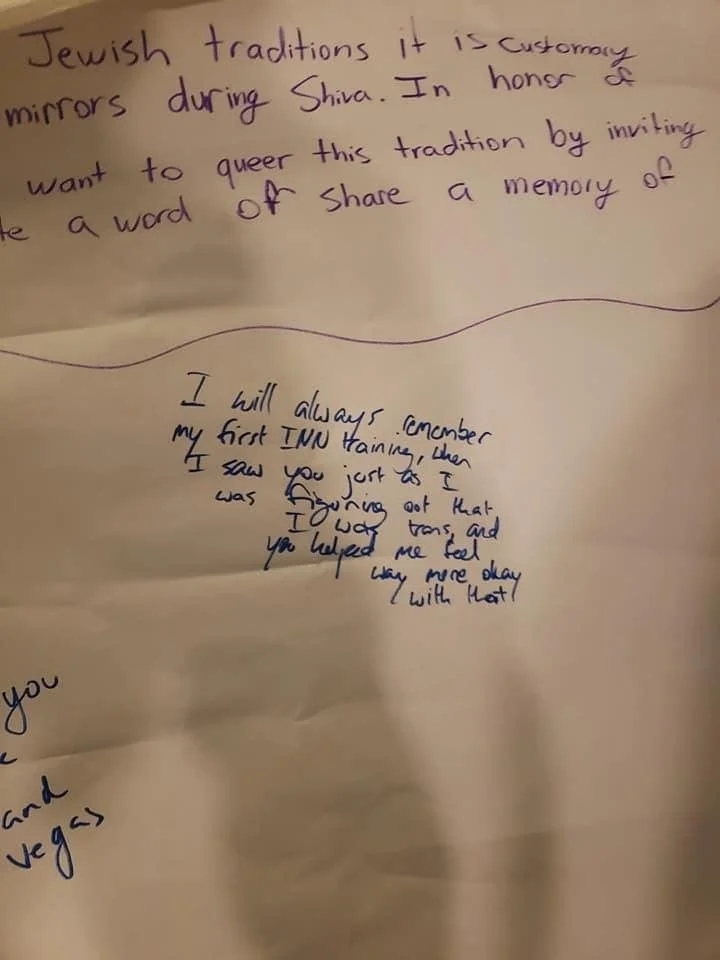 Jewish traditions it is customary
mirrors during Shiva. In honor of
want to queer this tradition by inviting
te a word of share a memory of
I will always remember
my first INN training, when
I saw you just as I
was figuring out that
I was trans, and
you helped me feel
way more okay
with that!
you
and
vegas